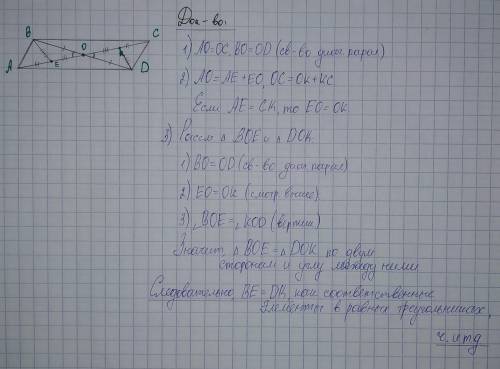 Док-во:
B C
O
A E K D
1) AO=OC, BO=OD (св-во диаг. парал)
2) AO=AE+EO, OC=OK+KC
Если AE=CK, то EO=OK
3) Рассм △ BOE и △ DOK
1) BO=OD (св-во диаг парал)
2) EO=OK (смотр выше)
3) ∠BOE=∠KOD (вертик)
Значит △ BOE=△ DOK по двум
сторонам и углу между ними
Следовательно, BE=DK, как соответственные
элементы в равных треугольниках,
ч.итд